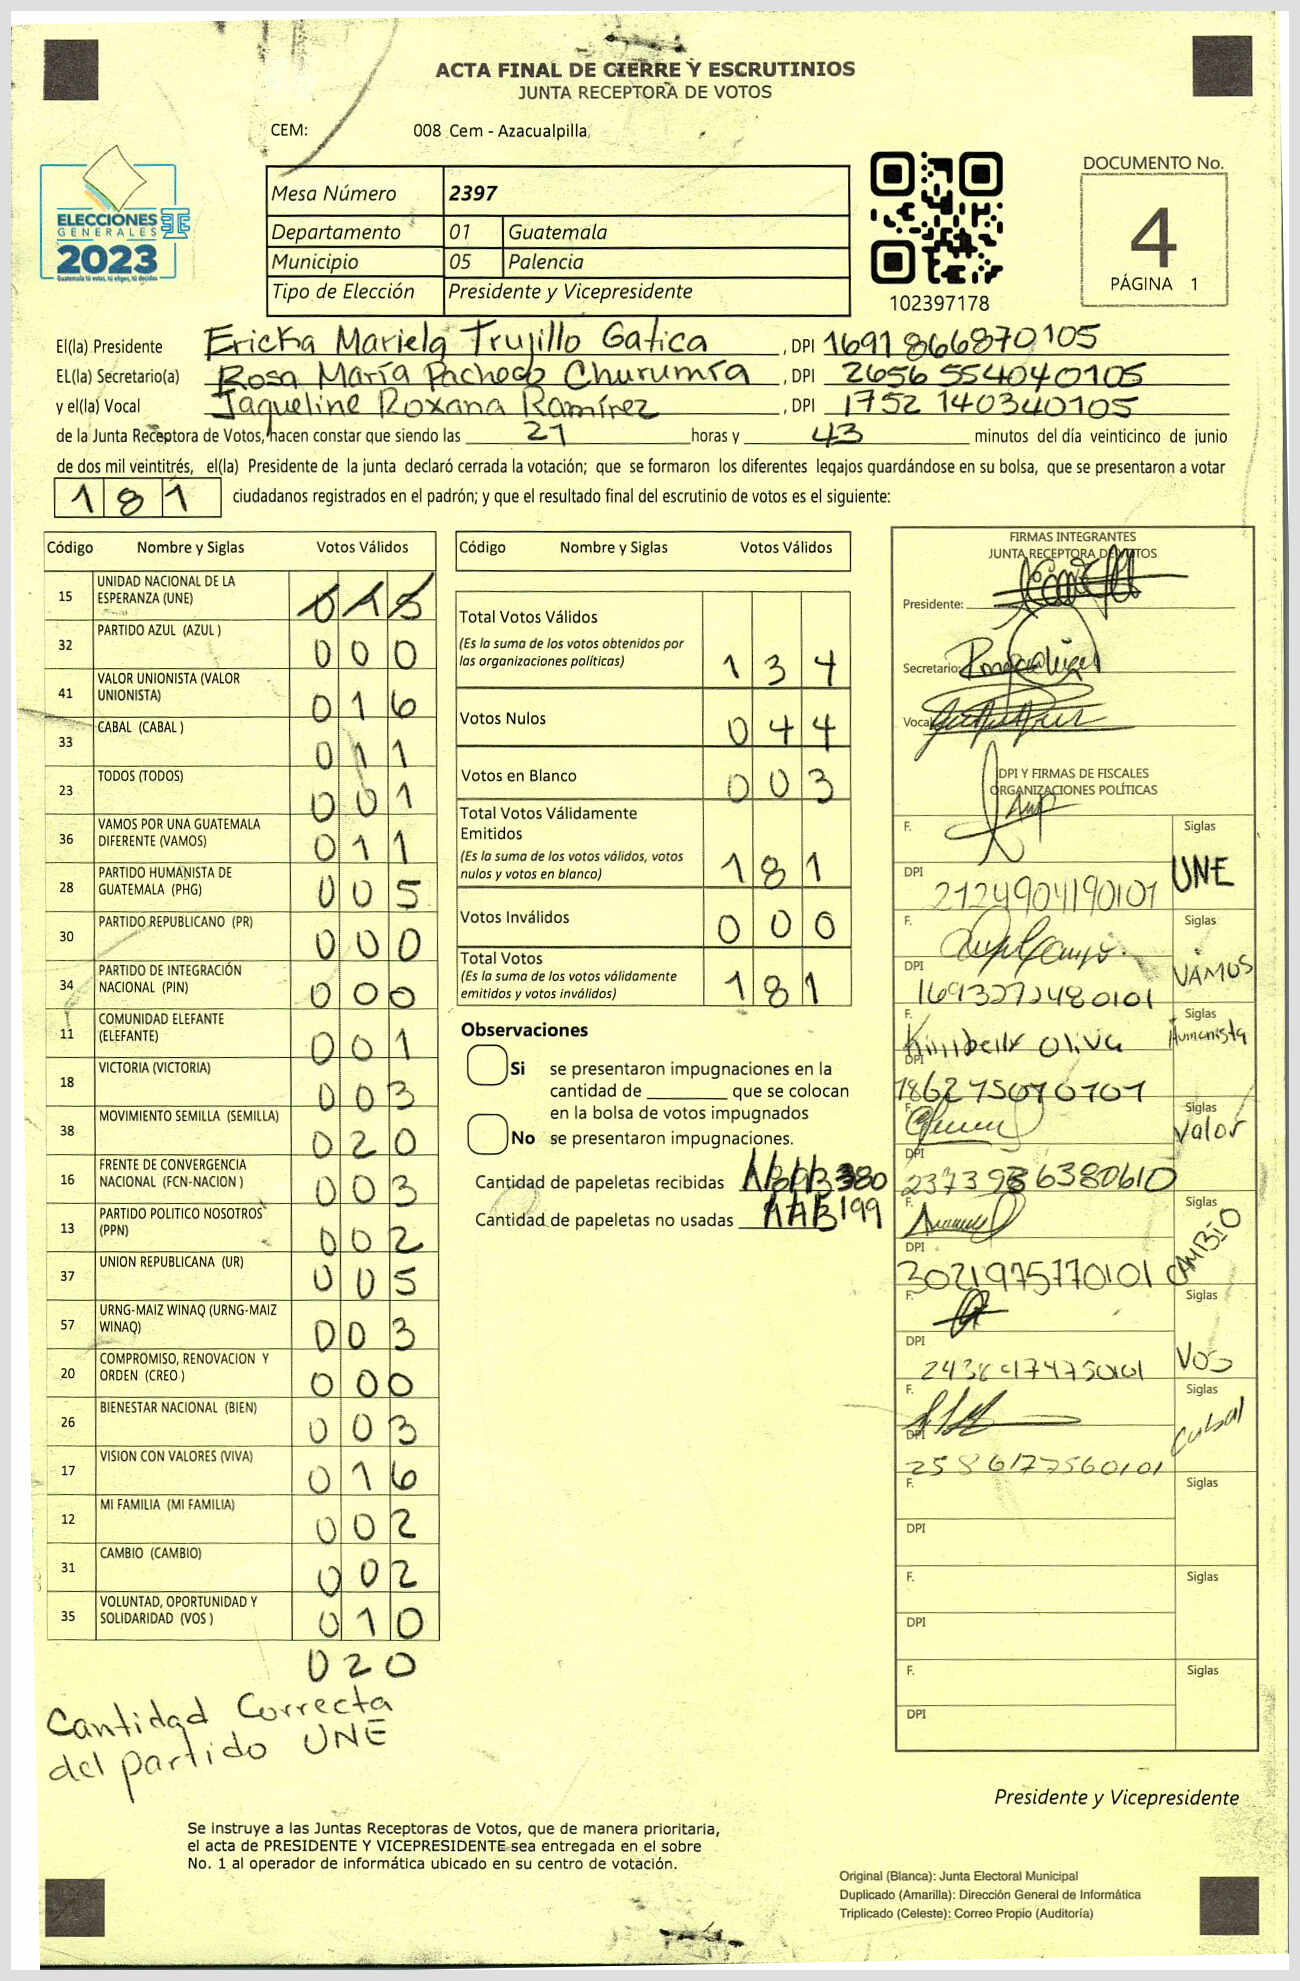 ACTA FINAL DE CIERRE Y ESCRUTINIOS
JUNTA RECEPTORA DE VOTOS
CEM: 008 Cem - Azacualpilla
ELECCIONES
GENERALES
2023
Guatemala tú votas, tú eliges, tú decides
Mesa Número 2397
Departamento 01 Guatemala
Municipio 05 Palencia
Tipo de Elección Presidente y Vicepresidente
102397178
DOCUMENTO No.
4
PÁGINA 1
El(la) Presidente Ericka Mariela Trujillo Gatica, DPI 1691866870105
EL(la) Secretario(a) Rosa María Pacheco Churumía, DPI 2656554040105
y el(la) Vocal Jaqueline Roxana Ramírez, DPI 1752140340105
de la Junta Receptora de Votos, hacen constar que siendo las 21 horas y 43 minutos del día veinticinco de junio
de dos mil veintitrés, el(la) Presidente de la junta declaró cerrada la votación; que se formaron los diferentes legajos guardándose en su bolsa, que se presentaron a votar
181 ciudadanos registrados en el padrón; y que el resultado final del escrutinio de votos es el siguiente:
Código Nombre y Siglas Votos Válidos
15 UNIDAD NACIONAL DE LA ESPERANZA (UNE) 015
32 PARTIDO AZUL (AZUL ) 000
41 VALOR UNIONISTA (VALOR UNIONISTA) 016
33 CABAL (CABAL ) 011
23 TODOS (TODOS) 001
36 VAMOS POR UNA GUATEMALA DIFERENTE (VAMOS) 011
28 PARTIDO HUMANISTA DE GUATEMALA (PHG) 005
30 PARTIDO REPUBLICANO (PR) 000
34 PARTIDO DE INTEGRACIÓN NACIONAL (PIN) 000
11 COMUNIDAD ELEFANTE (ELEFANTE) 001
18 VICTORIA (VICTORIA) 003
38 MOVIMIENTO SEMILLA (SEMILLA) 020
16 FRENTE DE CONVERGENCIA NACIONAL (FCN-NACION ) 003
13 PARTIDO POLITICO NOSOTROS (PPN) 002
37 UNION REPUBLICANA (UR) 005
57 URNG-MAIZ WINAQ (URNG-MAIZ WINAQ) 003
20 COMPROMISO, RENOVACION Y ORDEN (CREO ) 000
26 BIENESTAR NACIONAL (BIEN) 003
17 VISION CON VALORES (VIVA) 016
12 MI FAMILIA (MI FAMILIA) 002
31 CAMBIO (CAMBIO) 002
35 VOLUNTAD, OPORTUNIDAD Y SOLIDARIDAD (VOS ) 010
020
Cantidad Correcta
del partido UNE
Código Nombre y Siglas Votos Válidos
Total Votos Válidos 134
(Es la suma de los votos obtenidos por
las organizaciones políticas)
Votos Nulos 044
Votos en Blanco 003
Total Votos Válidamente
Emitidos 181
(Es la suma de los votos válidos, votos
nulos y votos en blanco)
Votos Inválidos 000
Total Votos 181
(Es la suma de los votos válidamente
emitidos y votos inválidos)
Observaciones
Si se presentaron impugnaciones en la
cantidad de ________ que se colocan
en la bolsa de votos impugnados
No se presentaron impugnaciones.
Cantidad de papeletas recibidas 380
Cantidad de papeletas no usadas 199
FIRMAS INTEGRANTES
JUNTA RECEPTORA DE VOTOS
Presidente:
Secretario:
Vocal
DPI Y FIRMAS DE FISCALES
ORGANIZACIONES POLÍTICAS
F. Siglas
DPI 2124904190101 UNE
F. Siglas
DPI 1693272480101 VAMOS
F. Kimberly Oliva Siglas Humanista
DPI 186275070101
F. Siglas Valor
DPI 2373986380610
F. Siglas
DPI 3021975770101 CAMBIO
F. Siglas
DPI VOS
F. Siglas
DPI 2586177560101 Cabal
F. Siglas
DPI
F. Siglas
DPI
F. Siglas
DPI
Presidente y Vicepresidente
Se instruye a las Juntas Receptoras de Votos, que de manera prioritaria,
el acta de PRESIDENTE Y VICEPRESIDENTE sea entregada en el sobre
No. 1 al operador de informática ubicado en su centro de votación.
Original (Blanca): Junta Electoral Municipal
Duplicado (Amarilla): Dirección General de Informática
Triplicado (Celeste): Correo Propio (Auditoría)